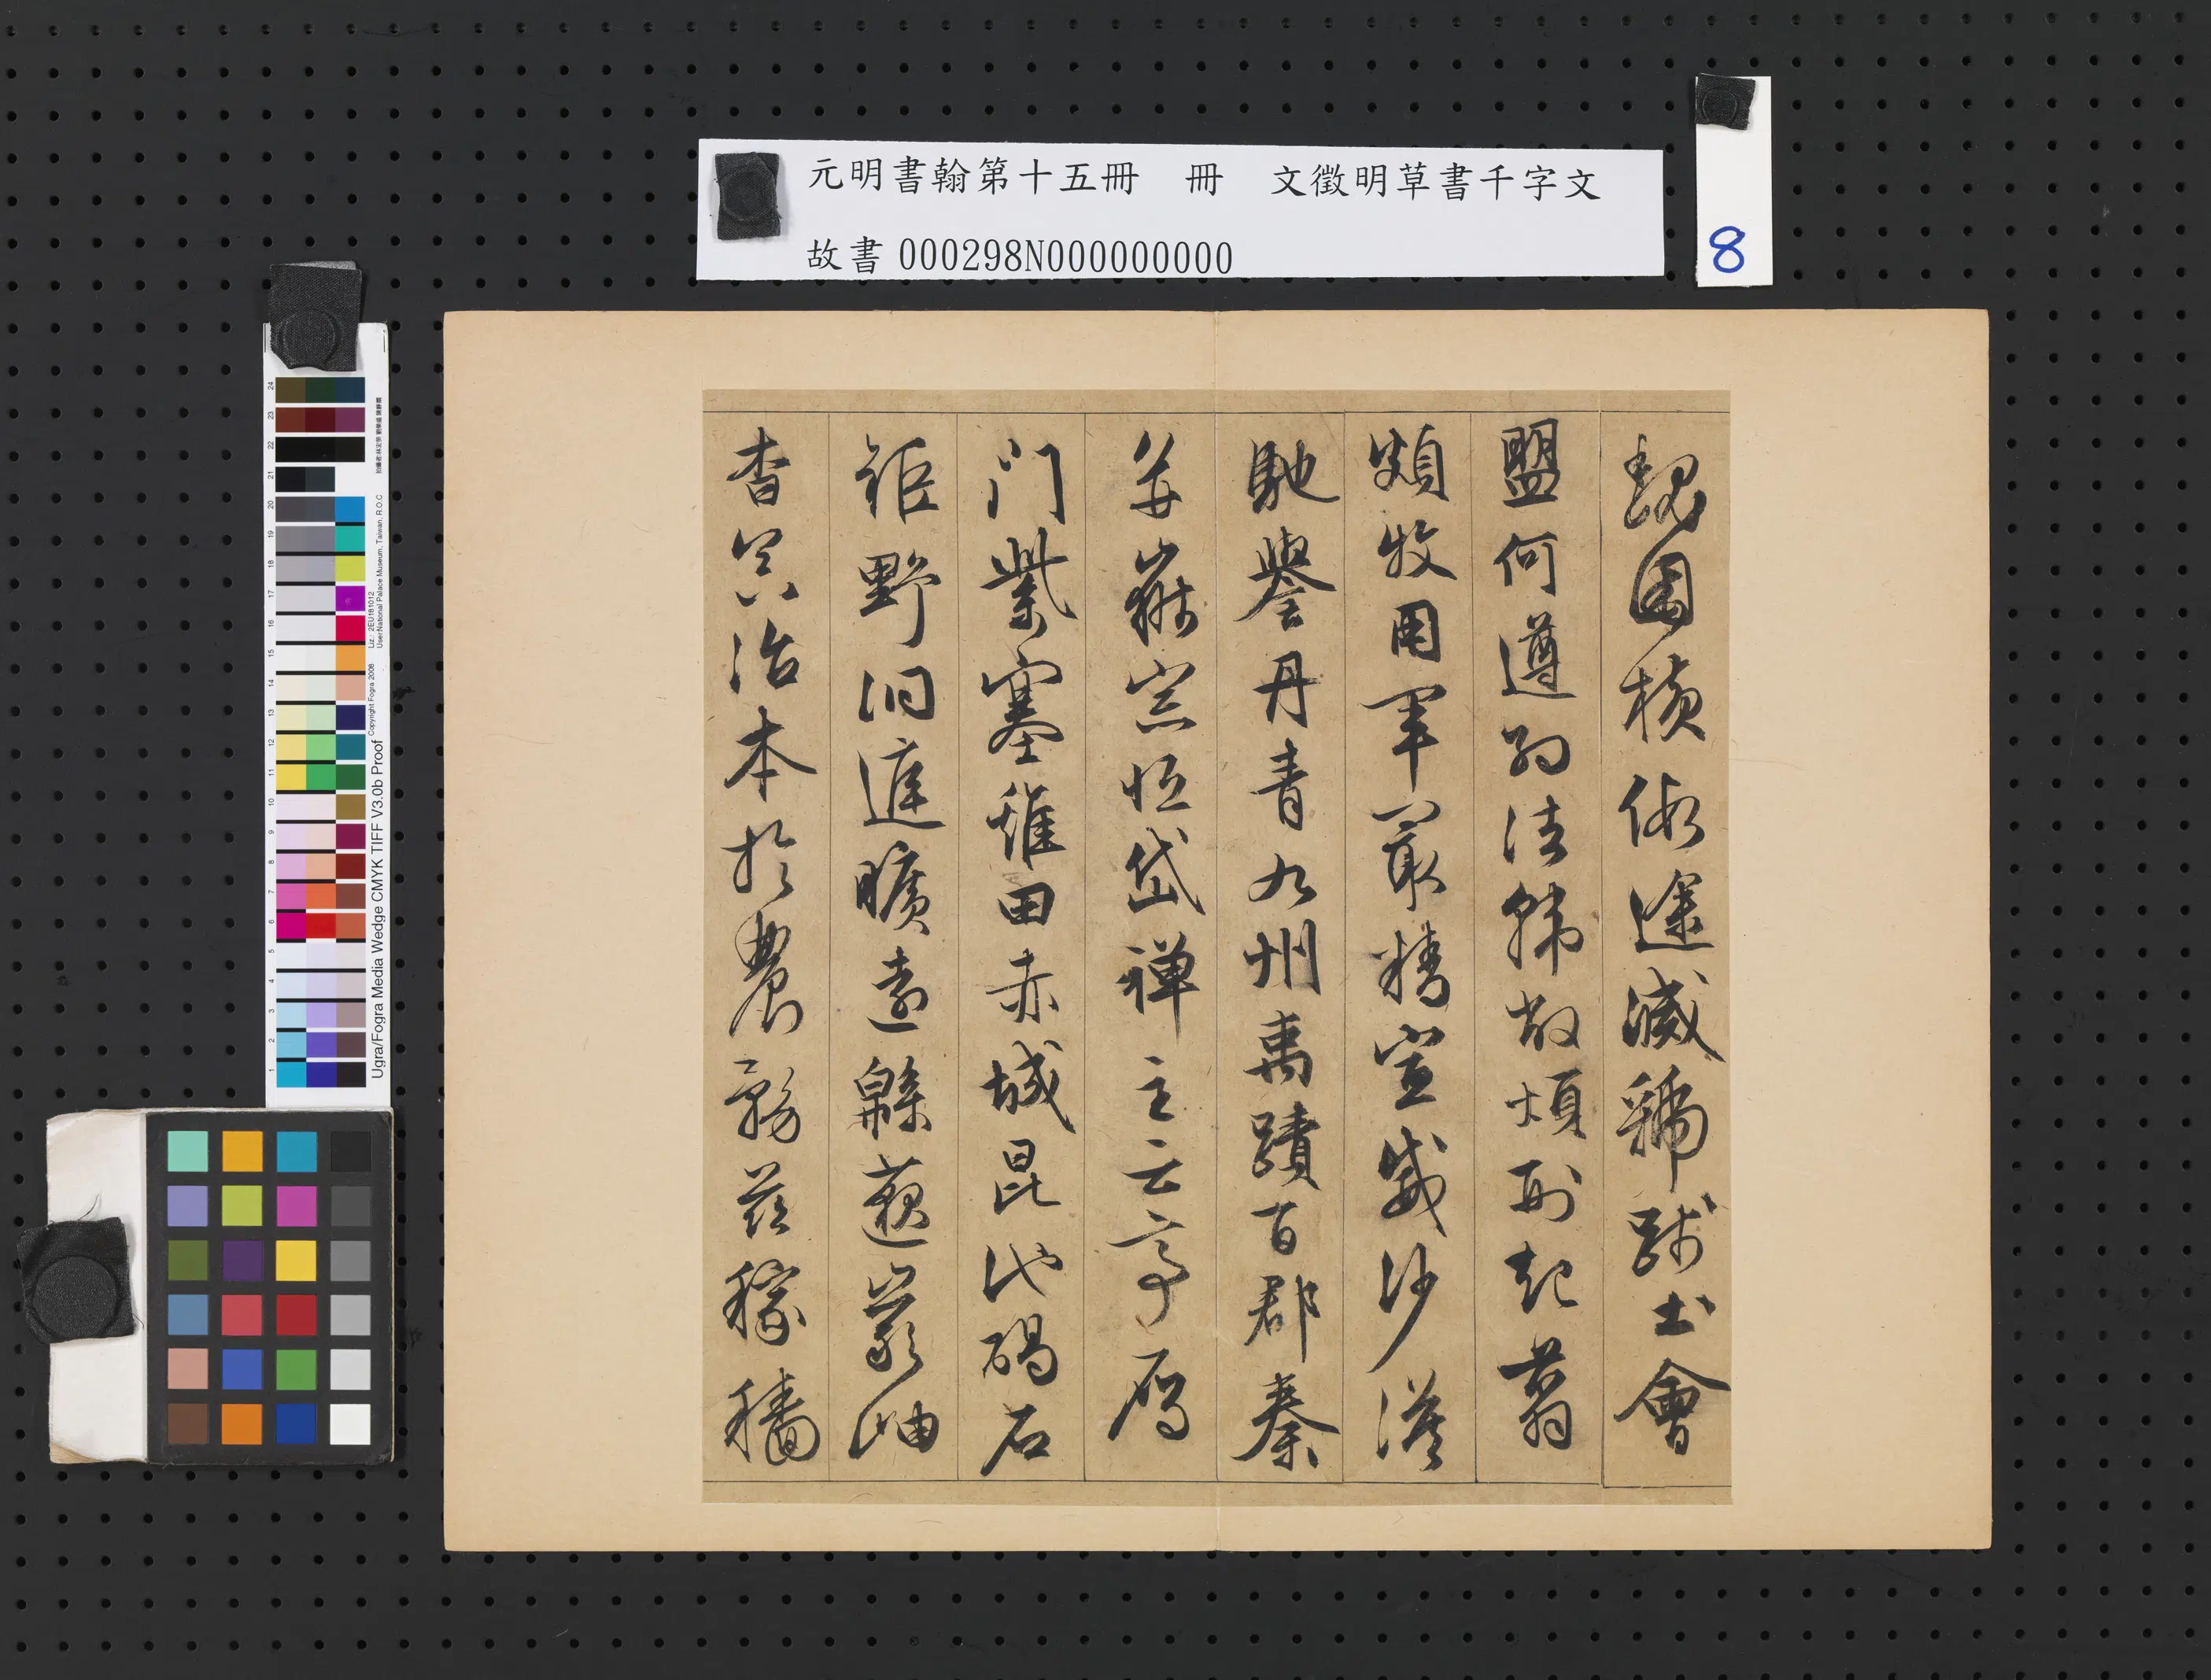 元明書翰第十五冊 冊 文徵明草書千字文
故書 000298N000000000
8
魏困橫假途滅虢踐土會
盟何遵約法韓弊煩刑起翦
頗牧用軍最精宣威沙漠
馳譽丹青九州禹蹟百郡秦
并嶽宗恒岱禪主云亭雁
門紫塞雞田赤城昆池碣石
鉅野洞庭曠遠緜邈巖岫
杳冥治本於農務茲稼穡
Ugra/Fogra Media Wedge CMYK TIFF V3.0b Proof
Copyright Fogra 2008
Liz.: 2EU181012
User:National Palace Museum, Taiwan, R.O.C
24
23
22
21
20
19
18
17
16
15
14
13
12
11
10
9
8
7
6
5
4
3
2
1